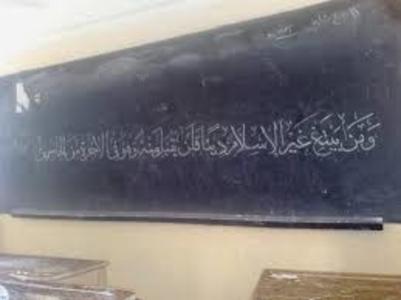 وَمَنْ يَبْتَغِ غَيْرَ الْإِسْلَامِ دِينًا فَلَنْ يُقْبَلَ مِنْهُ وَهُوَ فِي الْآخِرَةِ مِنَ الْخَاسِرِينَ